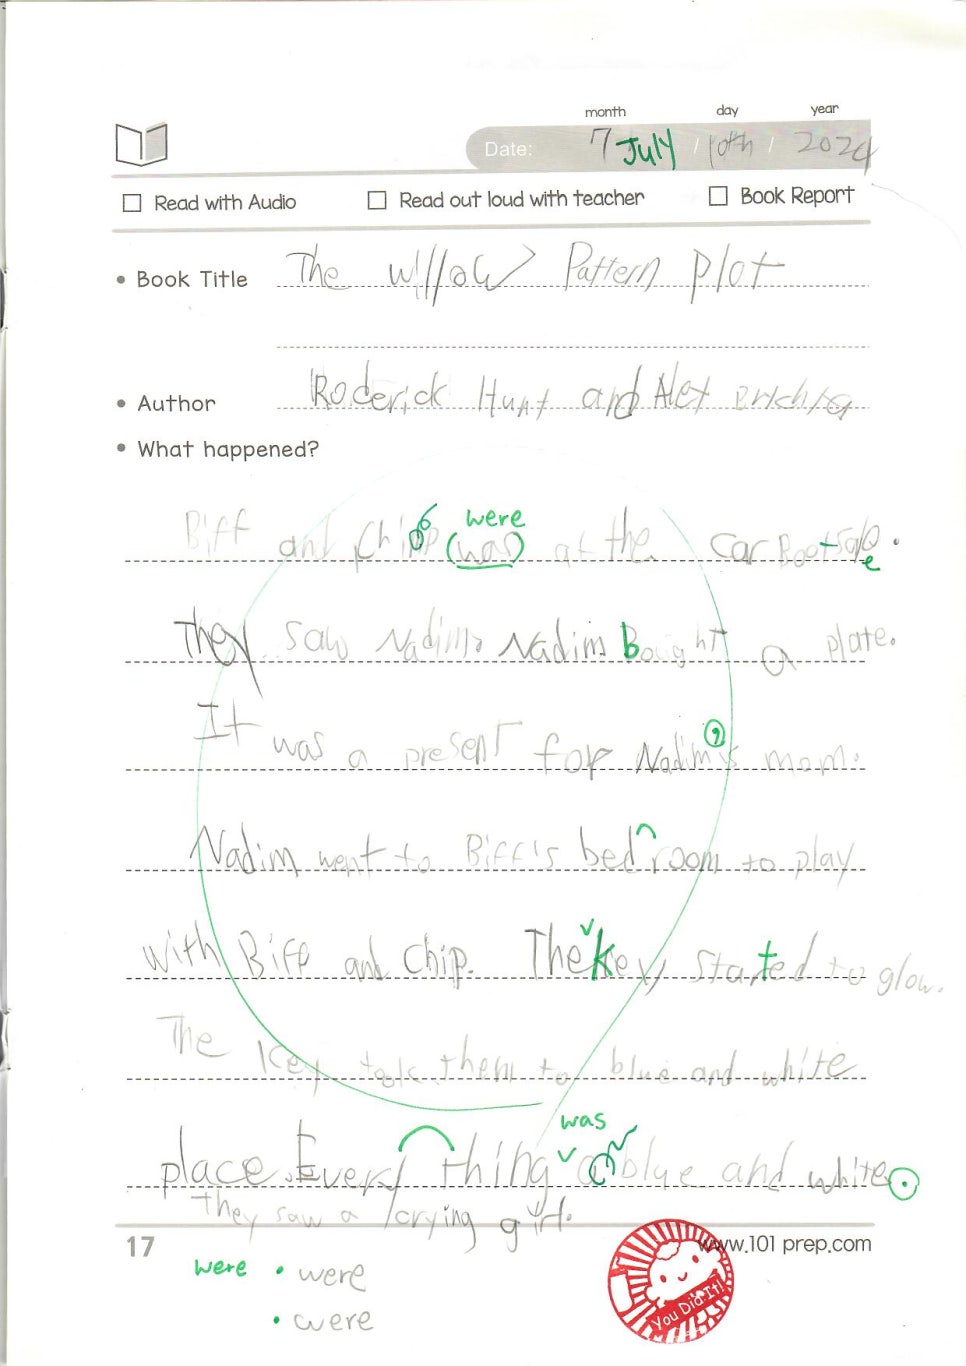 month day year
Date: 7 July / 10th / 2024
Read with Audio Read out loud with teacher Book Report
• Book Title The Willow Pattern Plot
• Author Roderick Hunt and Alex
• What happened?
were
Biff and Chip (was) at the Car Boot sale.
e
They saw Nadim. Nadim Bought a plate.
It was a present for Nadim's mom.
Nadim went to Biff's bedroom to play
with Biff and Chip. The key started to glow.
The key took them to blue and white
was
place. Every thing blue and white.
they saw a crying girl.
17 www.101prep.com
were • were
• were
You Did It!